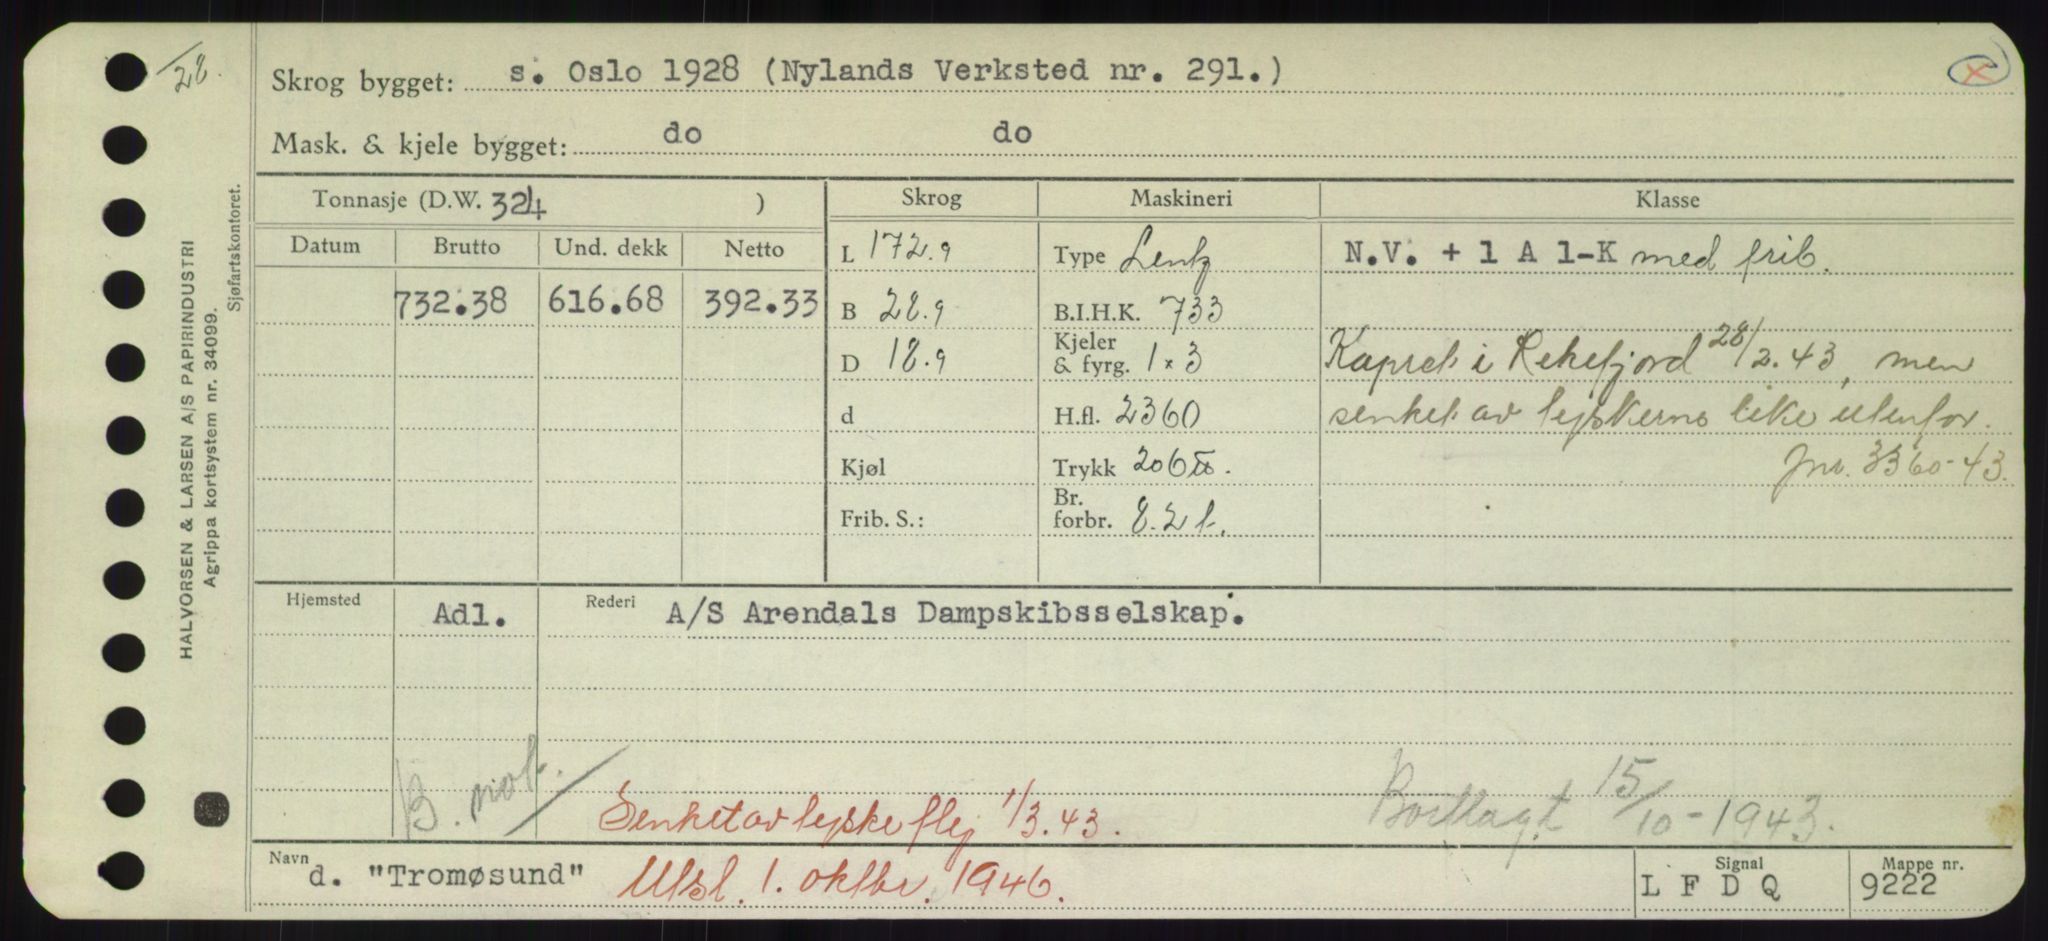 /28.
Skrog bygget: s. Oslo 1928 (Nylands Verksted nr. 291.)
x
Mask. & kjele bygget: do do
HALVORSEN & LARSEN A/S PAPIRINDUSTRI
Agrippa kortsystem nr. 34099.
Sjøfartskontoret.
Tonnasje (D.W. 324 ) Skrog Maskineri Klasse
Datum Brutto Und. dekk Netto
L 172.9 Type Lentz N.V. + 1 A 1-K med frib.
732.38 616.68 392.33 B 28.9 B.I.H.K. 733
D 18.9 Kjeler & fyrg. 1 x 3 Kapret i Rekefjord 28/2.43, men
d H.fl. 2360 senket av tyskerne like utenfor.
Kjøl Trykk 206 Jnr. 3360-43.
Frib. S.: Br. forbr. 8.2 t.
Hjemsted Adl. Rederi A/S Arendals Dampskibsselskap.
B. not.
Senket av tyske fly 1/3.43. Bortlagt 15/10-1943.
Navn d. "Tromøsund" Utsl. 1. oktbr. 1946. Signal L F D Q Mappe nr. 9222